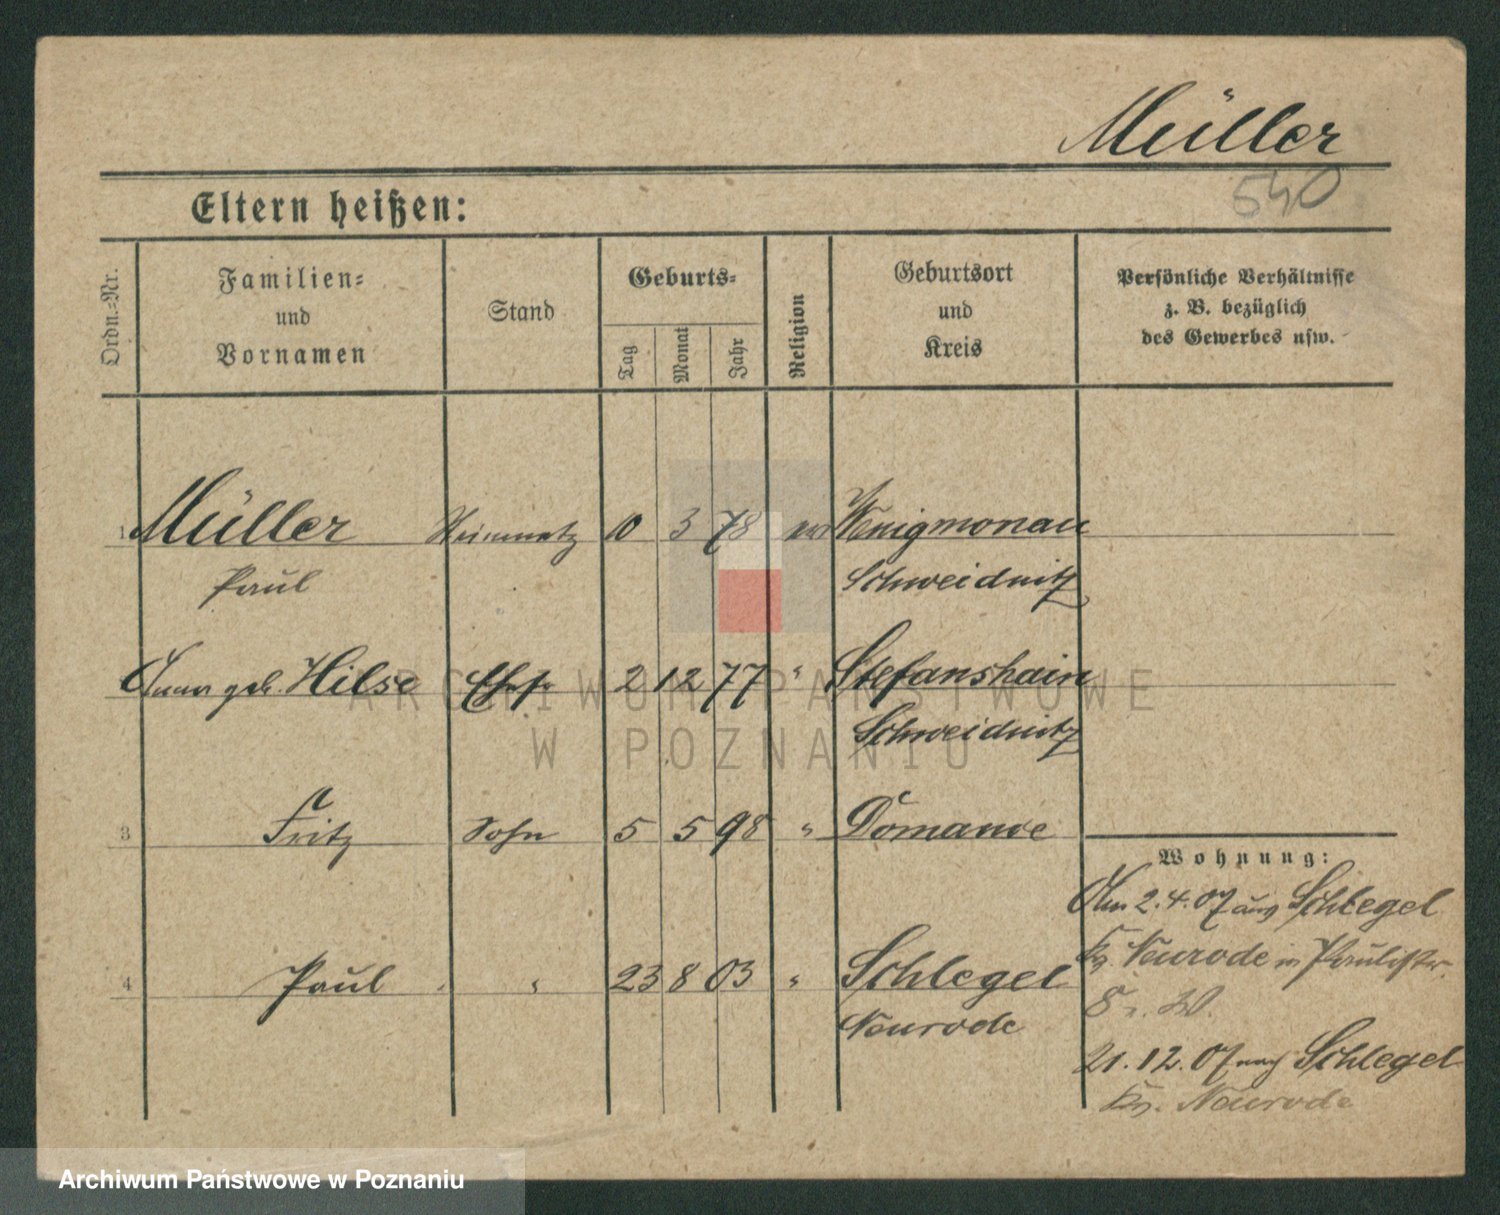 Müller
540
Eltern heißen:
Ordn.-Nr.
Familien-
und
Vornamen
Stand
Geburts-
Tag
Monat
Jahr
Religion
Geburtsort
und
Kreis
Persönliche Verhältnisse
z. B. bezüglich
des Gewerbes usw.
1 Müller 10 3 78 Wenigmonau
Paul Schweidnitz
Anna geb. Hilse Ehefr. 2 12 77 " Stefanshain
Schweidnitz
3 Fritz Sohn 5 5 98 " Domanze
Wohnung:
Am 2.4.07 aus Schlegel
Kr. Neurode in
4 Paul " 23 8 03 " Schlegel
Neurode
21.12.07 nach Schlegel
Kr. Neurode
ARCHIWUM PAŃSTWOWE
W POZNANIU
Archiwum Państwowe w Poznaniu